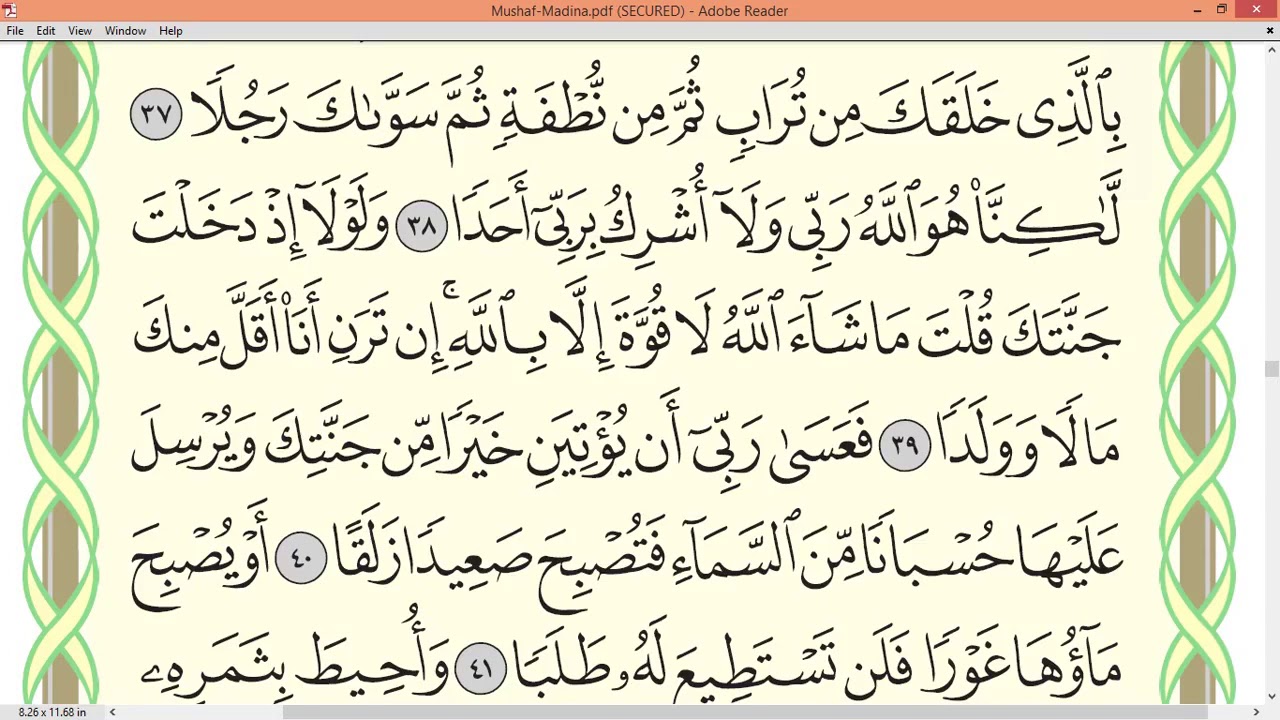 Mushaf-Madina.pdf (SECURED) - Adobe Reader
File Edit View Window Help
بِٱلَّذِى خَلَقَكَ مِن تُرَابٍ ثُمَّ مِن نُّطْفَةٍ ثُمَّ سَوَّىٰكَ رَجُلًا ٣٧
لَّٰكِنَّا۠ هُوَ ٱللَّهُ رَبِّى وَلَآ أُشْرِكُ بِرَبِّىٓ أَحَدًا ٣٨ وَلَوْلَآ إِذْ دَخَلْتَ
جَنَّتَكَ قُلْتَ مَا شَآءَ ٱللَّهُ لَا قُوَّةَ إِلَّا بِٱللَّهِ ۚ إِن تَرَنِ أَنَا۠ أَقَلَّ مِنكَ
مَالًا وَوَلَدًا ٣٩ فَعَسَىٰ رَبِّىٓ أَن يُؤْتِيَنِ خَيْرًا مِّن جَنَّتِكَ وَيُرْسِلَ
عَلَيْهَا حُسْبَانًا مِّنَ ٱلسَّمَآءِ فَتُصْبِحَ صَعِيدًا زَلَقًا ٤٠ أَوْ يُصْبِحَ
مَآؤُهَا غَوْرًا فَلَن تَسْتَطِيعَ لَهُۥ طَلَبًا ٤١ وَأُحِيطَ بِثَمَرِهِۦ
8.26 x 11.68 in